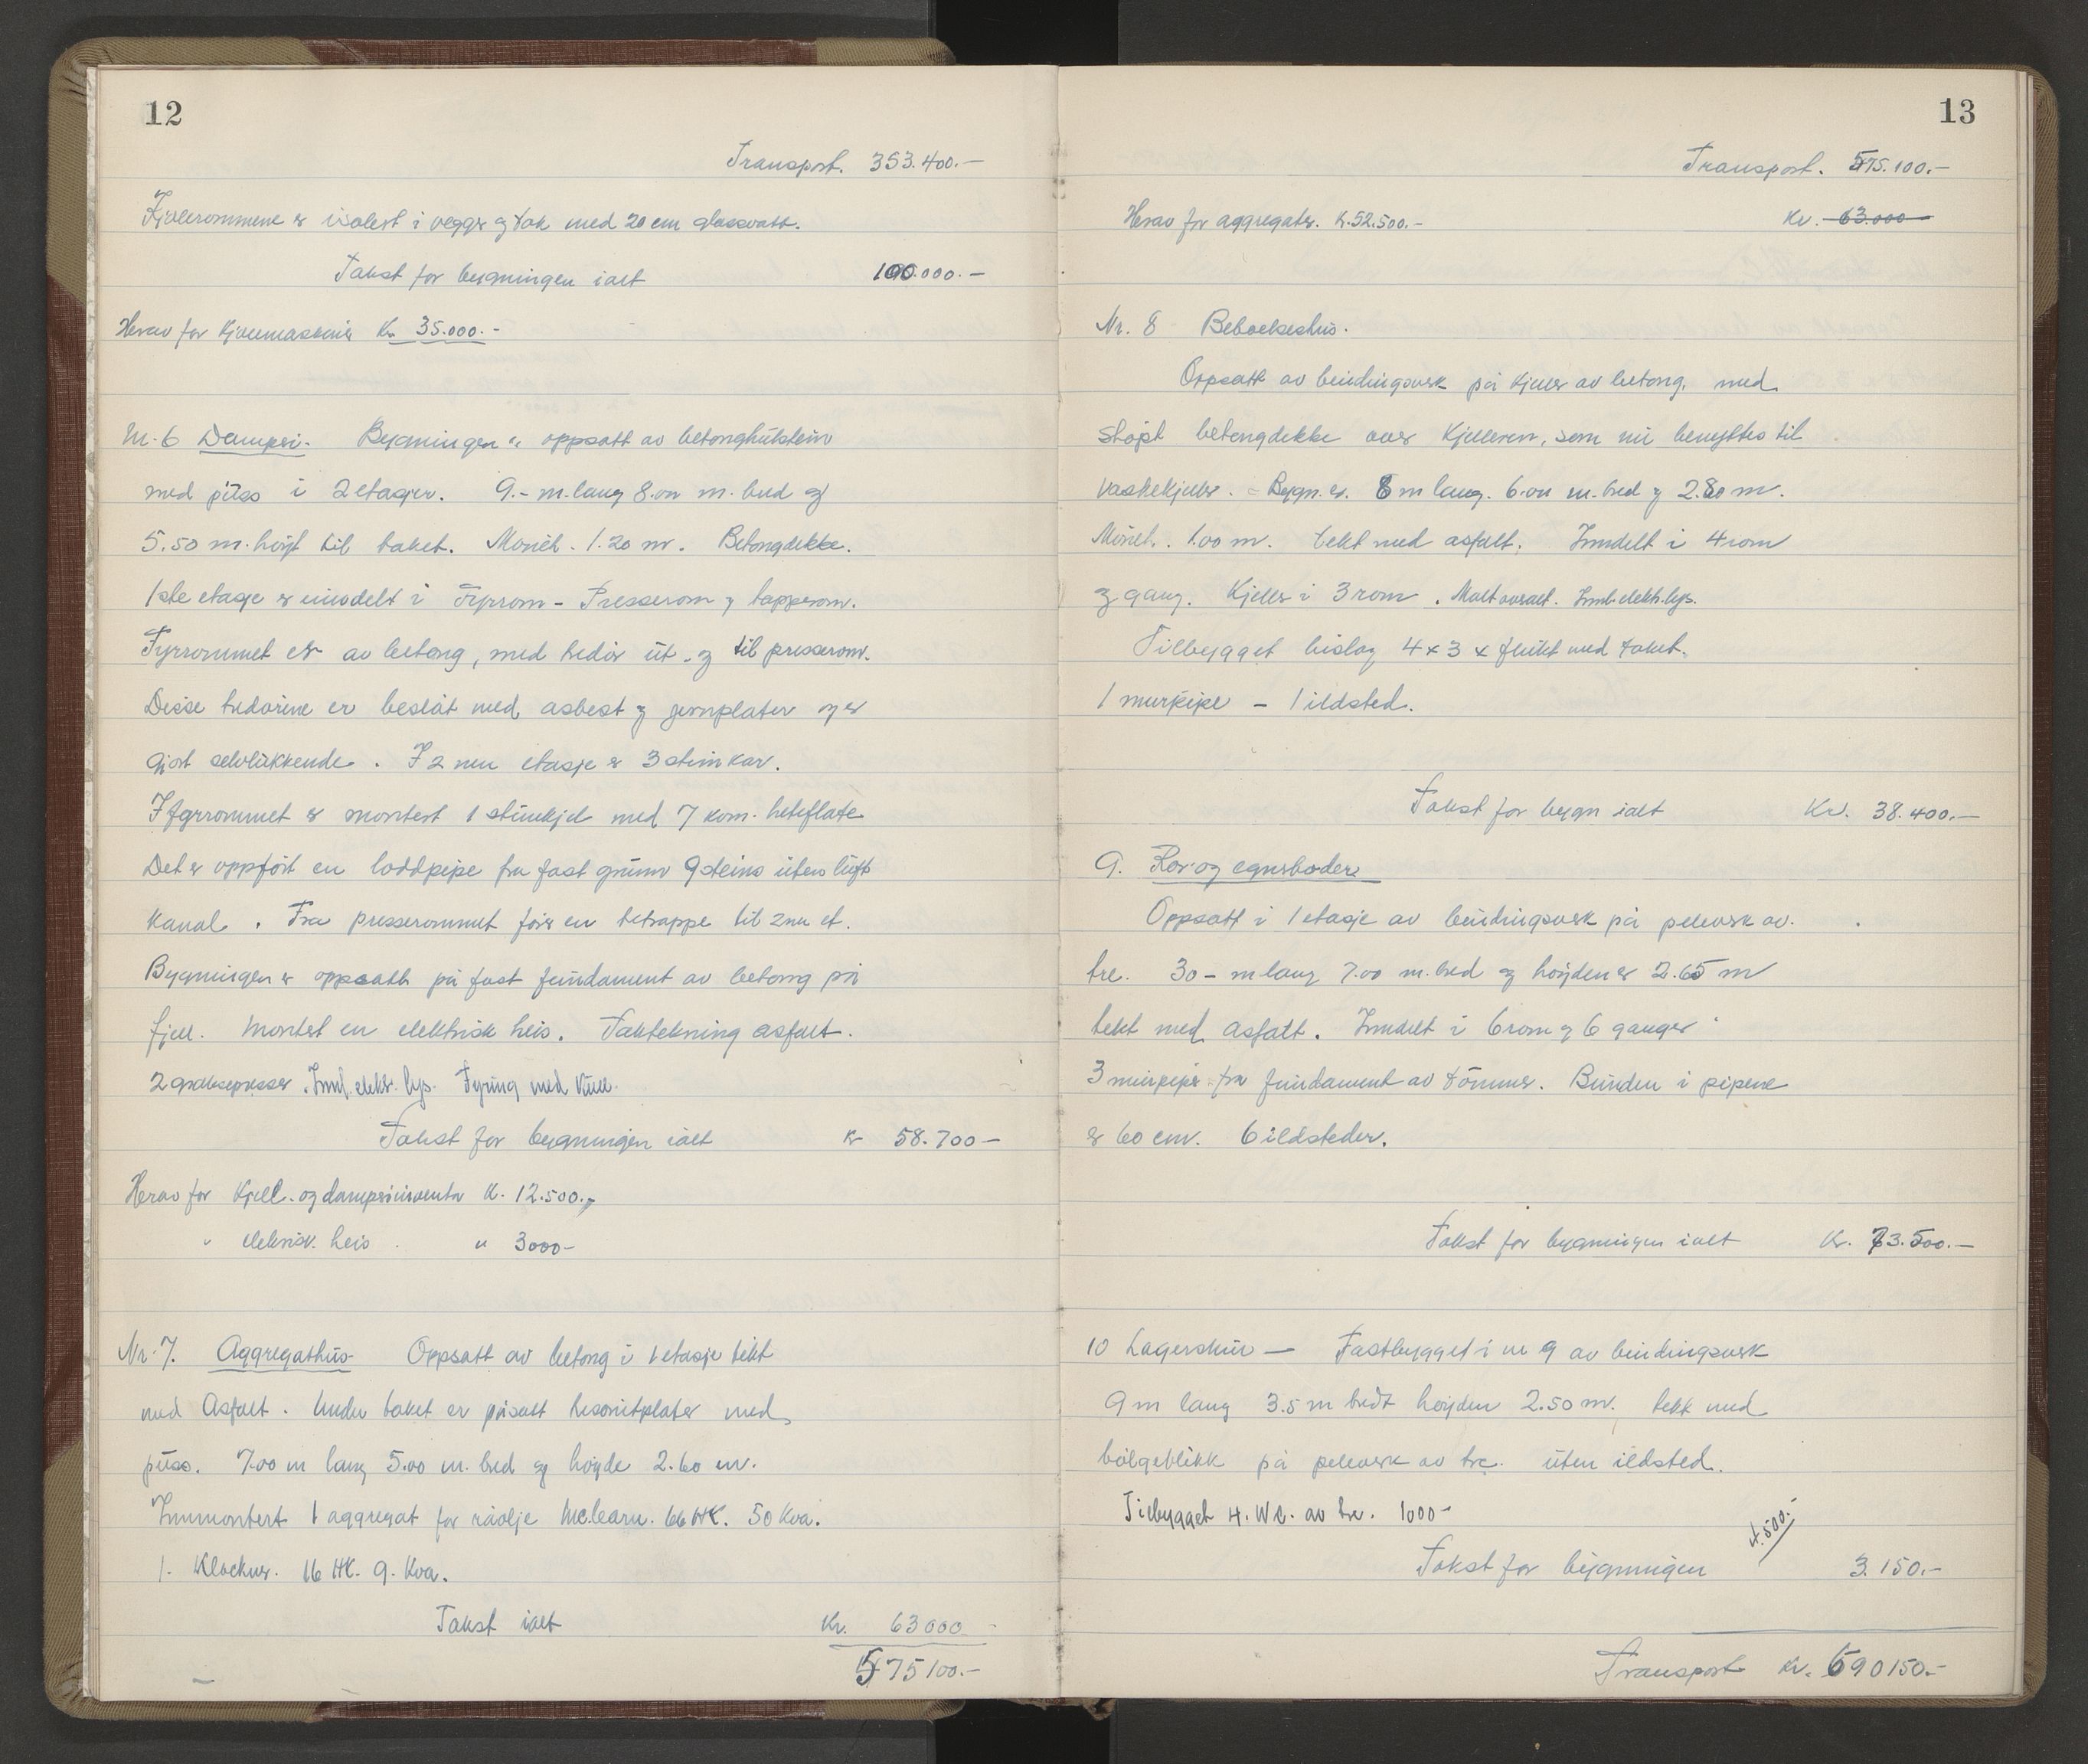 12
Transport. 353.400.-
Kjølerommene er isolert i vegger og tak med 20 cm glassvatt.
Takst for bygningen ialt 100.000.-
Herav for kjølemaskiner Kr. 35.000.-
Nr. 6 Damperi. Bygningen er oppsatt av betonghulstein
med püss i 2 etasjer. 9.- m. lang 8.00 m. bred og
5.50 m. høyt til taket. Møneh. 1.20 m. Betongdekke.
1ste etasje er inndelt i fyrrom - Presserom og tapperom.
Fyrrommet er av betong, med tredør üt - og til presserom.
Disse tredørene er beslått med asbest og jernplater og er
gjort selvlükkende. I 2 nen etasje er 3 stimkar.
I fyrrommet er montert 1 stimkjel med 7 kvm. heteflate
Det er oppført en loddpipe fra fast grünn 9 steins üten lüft
kanal. Fra presserommet fører en tretrappe til 2nen et.
Bygningen er oppsatt på fast fündament av betong på
fjell. Montert en elektrisk heis. Taktekning asfalt.
2 graksepresser. Innl. elektr. lys. Fyring med küll.
Takst for bygningen ialt kr 58.700-
Herav for Kjell. og damperiinventar K. 12.500.-
" elektrisk. heis. " 3000-
Nr. 7. Aggregathüs Oppsatt av betong i 1 etasje tekt
med Asfalt. Under taket er påsatt hesonitplater med
püss. 7.00 m lang 5.00 m. bred og høyde 2.60 m.
Innmontert 1 aggregat for råolje Mc.learn. 66 HK. 50 Kva.
1. Klockner. 16 HK. 9. Kva.
Takst ialt Kr. 63000
575100.-
13
Transport. 575.100.-
Herav for aggregater. K. 52.500.- Kr. 63.000
Nr. 8 Beboelseshus.
Oppsatt av bindingsverk på kjeller av betong, med
støpt betongdekke over kjelleren, som nü benyttes til
vaskekjeller. Bygn. er. 8 m lang. 6.00 m. bred og 2.80 m.
Møneh. 1.00 m. tekt med asfalt. Inndelt i 4 rom
og gang. Kjeller i 3 rom. Malt overalt. Innl. elektr. lys.
Tilbygget bislag 4 x 3 x flükt med taket.
1 murpipe - 1 ildsted.
Takst for bygn ialt Kr. 38.400.-
9. Ror og egnerboder
Oppsatt i 1 etasje av bindingsverk på peleverk av.
tre. 30 - m lang 7.00 m. bred og høyden er 2.65 m
tekt med asfalt. Inndelt i 6 rom og 6 ganger
3 mürpiper fra fündament av tömmer. Bünden i pipene
er 60 cm. 6 ildsteder.
Takst for bygningen ialt Kr. 73.500.-
10 Lagerskür - Fastbygget i nr 9 av bindingsverk
9 m lang 3.5 m bredt høyden 2.50 m. tekk med
bølgeblikk på peleverk av tre. üten ildsted.
Tilbygget 4. W.C. av tre. 1000-
4.500.-
Takst for bygningen 3.150.-
Transport Kr. 690150.-